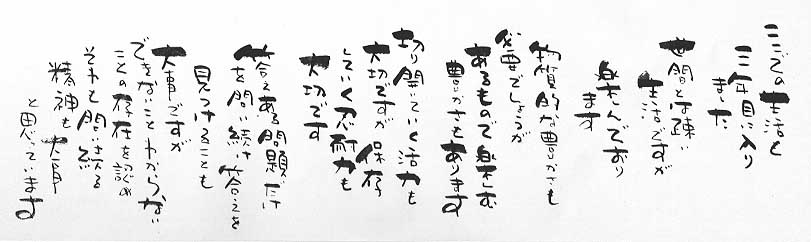 ここでの生活も
三年目に入り
ました
世間とは疎い
生活ですが
楽しんでおり
ます
物質的な豊かさも
必要でしょうが
あるもので楽しむ
豊かさもあります
切り開いていく活力も
大切ですが保存
していく忍耐力も
大切です
答えある問題だけ
を問い続け答えを
見つけることも
大事ですが
できないことわからない
ことの存在を認め
それを問い続ける
精神も大事
と思っています